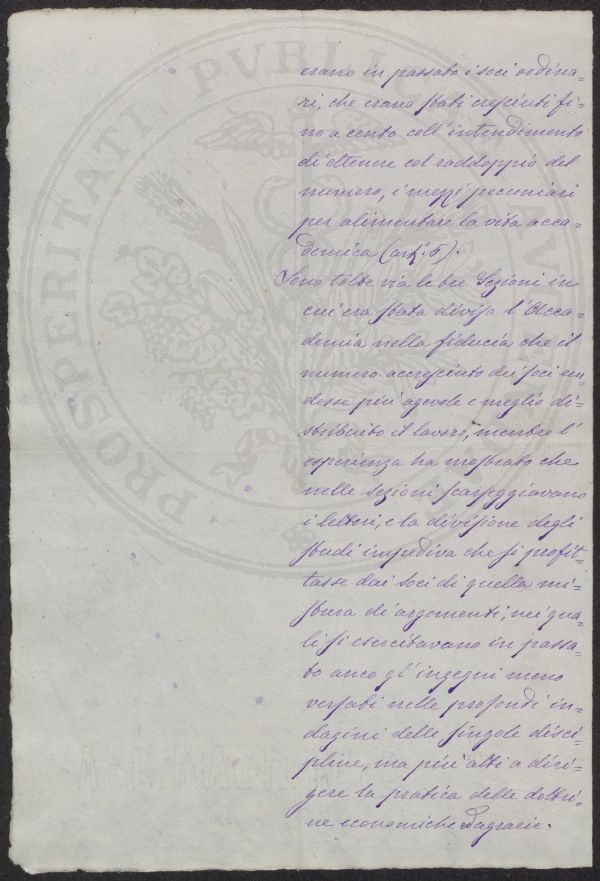 PROSPERITATI PVBLICAE AV
erano in passato i soci ordina=
ri, che erano stati cresciuti fi=
no a cento coll'intendimento
di ottenere col raddoppio del
numero, i mezzi pecuniari
per alimentare la vita acca=
demica (art.° 6).
Sono tolte via le tre Sezioni in
cui era stata divisa l'Acca=
demia nella fiducia che il
numero accresciuto dei soci ren=
desse più agevole e meglio di=
stribuito il lavoro, mentre l'
esperienza ha mostrato che
nelle sezioni scarseggiavano
i lettori, e la divisione degli
studi impediva che si profit=
tasse dai soci di quella mi=
stura di argomenti, nei qua=
li si esercitavano in passa=
to anco gl'ingegni meno
versati nelle profonde in=
dagini delle singole disci=
pline, ma più atti a diri=
gere la pratica delle dottri=
ne economiche agrarie.